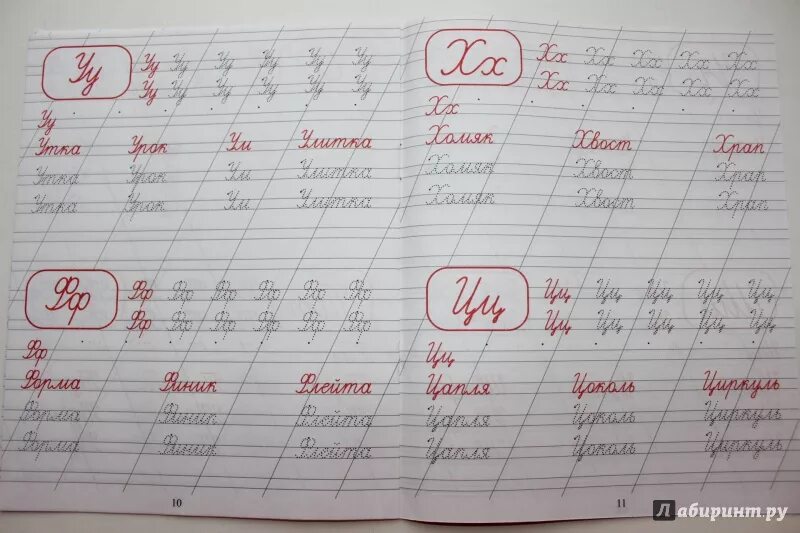 Уу
Уу Уу Уу Уу Уу Уу
Уу Уу Уу Уу Уу Уу
Уу
Утка Урок Ум Улитка
Утка Урок Ум Улитка
Утка Урок Ум Улитка
Фф
Фф Фф Фф Фф Фф Фф
Фф Фф Фф Фф Фф Фф
Фф
Форма Финик Флейта
Форма Финик Флейта
Форма Финик Флейта
10
Хх
Хх Хх Хх Хх Хх
Хх Хх Хх Хх Хх
Хх
Хомяк Хвост Храп
Хомяк Хвост Храп
Хомяк Хвост Храп
Цц
Цц Цц Цц Цц Цц
Цц Цц Цц Цц Цц
Цц
Цапля Цоколь Циркуль
Цапля Цоколь Циркуль
Цапля Цоколь Циркуль
11
Лабиринт.ру